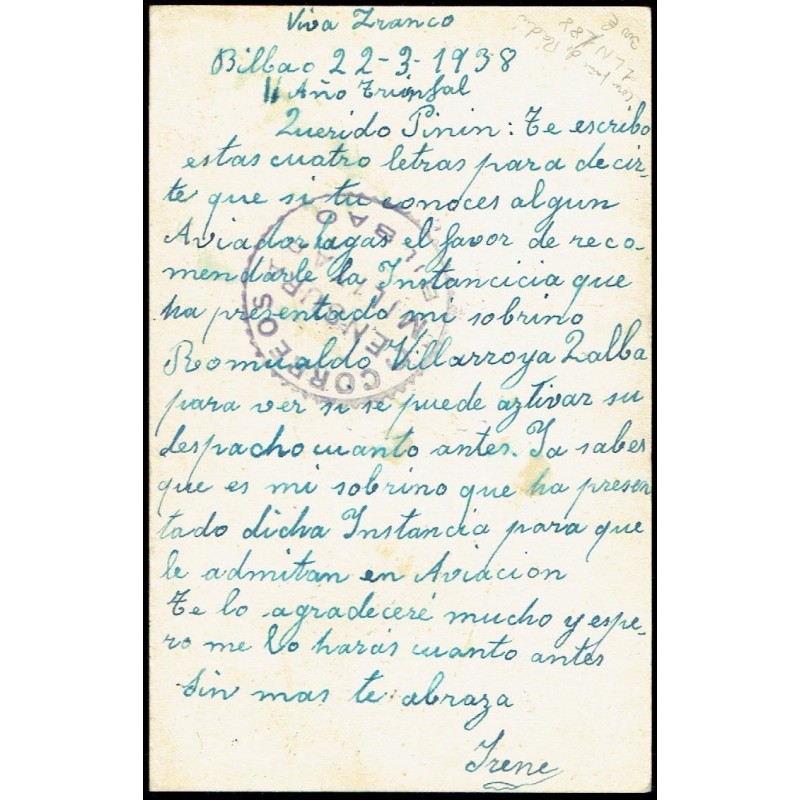 Viva Franco
Bilbao 22-3-1938
II Año Triunfal
Querido Pinin: Te escribo
estas cuatro letras para decir-
te que si tu conoces algun
Aviador hagas el favor de reco-
mendarle la Instancicia que
ha presentado mi sobrino
Romualdo Villarroya Zalba
para ver si se puede aztivar su
despacho cuanto antes. Ya sabes
que es mi sobrino que ha presen
tado dicha Instancia para que
le admitan en Aviacion
Te lo agradeceré mucho y espe-
ro me lo harás cuanto antes
Sin mas te abraza
Irene
CORREOS
CENSURA
MILITAR
BILBAO